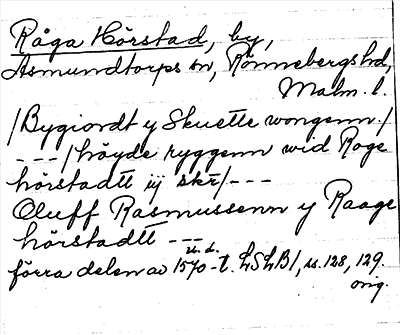 Råga Hörstad, by,
Asmundtorps sn, Rönnebergs hd,
Malm. l.
/Bygiordt y Skuette wongenn/
---/höyde ryggenn wid Roge
hörstadtt iij skr/---
Oluff Rasmussenn y Raage
hörstadtt ---
u. d.
förra delen av 1570-t. LSLB1, ss. 128, 129.
orig.